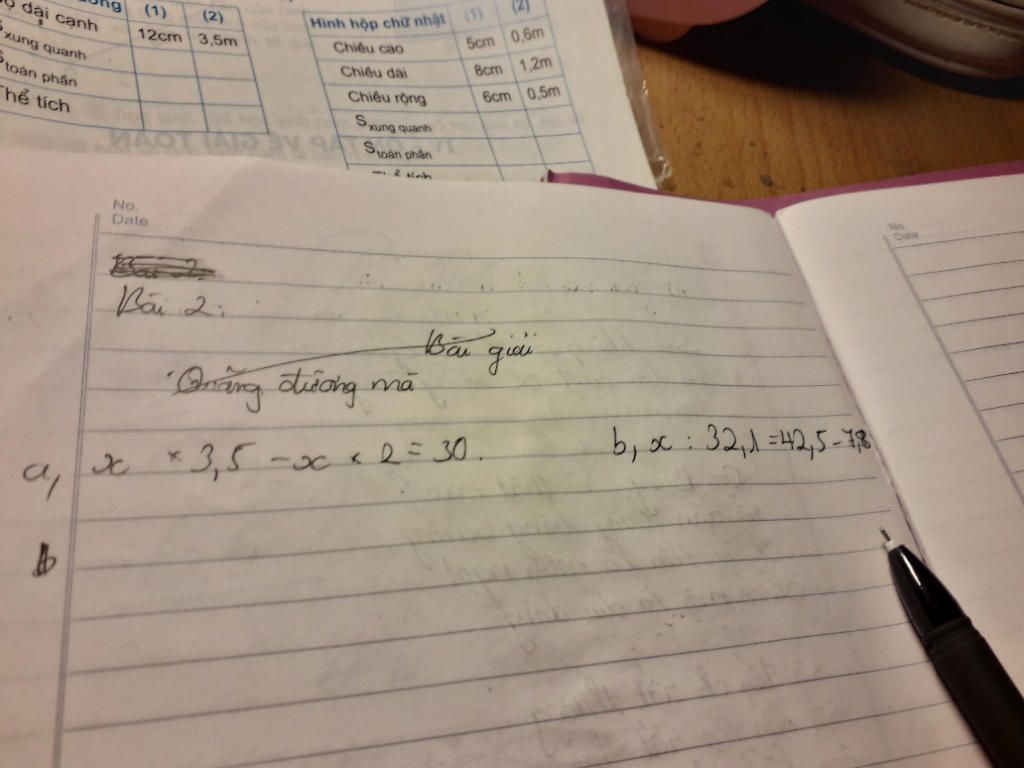 (1) (2)
dài cạnh 12cm 3,5m
xung quanh
toàn phần
Thể tích
Hình hộp chữ nhật (1) (2)
Chiều cao 5cm 0,6m
Chiều dài 8cm 1,2m
Chiều rộng 6cm 0,5m
S xung quanh
S toàn phần
No.
Date
No.
Date
Bài 2
Bài 2:
Bài giải
Quãng đường mà
a, x × 3,5 - x × 2 = 30.
b, x : 32,1 = 42,5 - 7,8
b